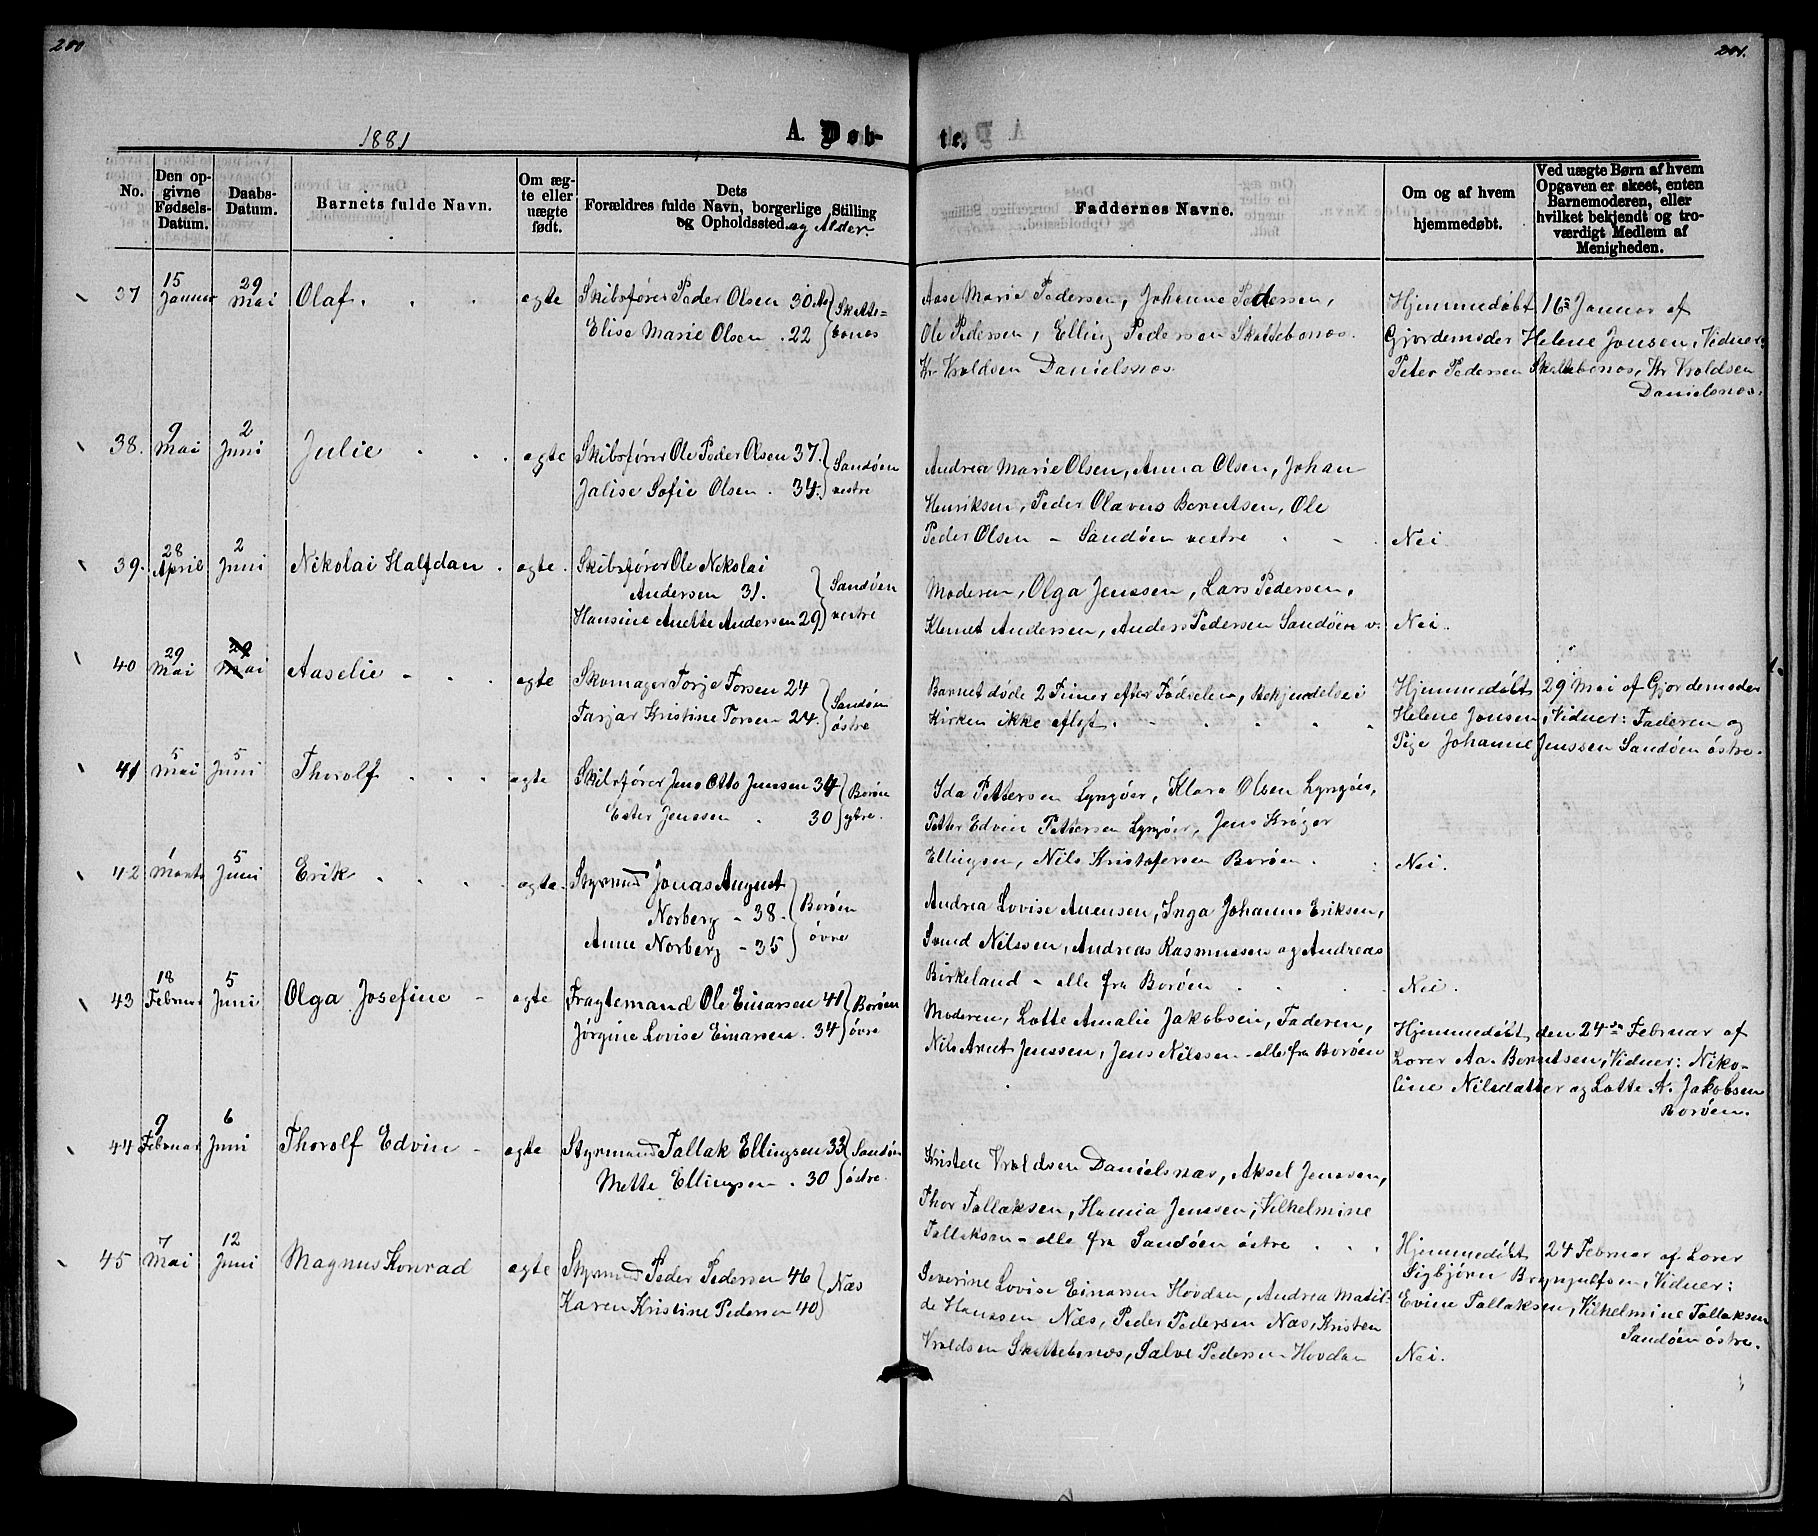 200
201.
1881
A. Døb-
te.
No.
Den op-
givne
Fødsels-
Datum.
Daabs-
Datum.
Barnets fulde Navn.
Om æg-
te eller
uægte
født.
Dets
Forældres fulde Navn, borgerlige Stilling
og Opholdssted. og Alder.
Faddernes Navne.
Om og af hvem
hjemmedøbt.
Ved uægte Børn af hvem
Opgaven er skeet, enten
Barnemoderen, eller
hvilket bekjendt og tro-
værdigt Medlem af
Menigheden.
37 15 Januar 29 Mai Olaf. ægte Skibsfører Peder Olsen 30 Aar
Elise Marie Olsen . 22 Skatte-
bonæs
Aase Marie Pedersen, Johanne Pedersen,
Ole Pedersen, Elling Pedersen Skattebonæs.
Kr Vroldsen Danielsnæs
Hjemmedøbt 16 Januar af
Gjordemoder Helene Jonsen, Vidner:
Peter Pedersen Skattebonæs, Kr Vroldsen
Danielsnæs.
38. 9 Mai 2 Juni Julie ægte Skibsfører Ole Peder Olsen 37
Jalise Sofie Olsen . 34. Sandøen
vestre
Andrea Marie Olsen, Anna Olsen, Johan
Henriksen, Peder Olavus Berntsen, Ole
Peder Olsen - Sandøen vestre
Nei
39. 28 April 2 Juni Nikolai Halfdan . ægte. Skibsfører Ole Nikolai
Andersen 31.
Hansine Anette Andersen 29 Sandøen
vestre
Moderen, Olga Jenssen, Lars Pedersen,
Klemet Andersen, Anders Pedersen Sandøen v.
Nei.
40 29 Mai 29 Mai Aaselie - ægte Skomager Torje Torsen 24
Tarjar Kristine Torsen 24. Sandøen
østre
Barnet døde 2 Timer efter Fødselen, Bekjendelse i
Kirken ikke aflagt.
Hjemmedøbt 29 Mai af Gjordemoder
Helene Jonsen, Vidner: Faderen og
Pige Johanne Jenssen Sandøen østre.
41 5 Mai 5 Juni Thorolf ægte Skibsfører Jens Otto Jenssen 34
Ester Jenssen . 30 Borøen
ytre.
Ida Pettersen Lyngøer, Klara Olsen Lyngøer,
Petter Edvin Pettersen Lyngøer, Jens Krøger
Ellingsen, Nils Kristofersen Borøen.
Nei.
42 1 Marts 5 Juni Erik ægte. Styrmand Jonas August
Norberg - 38.
Anne Norberg - 35 Borøen
øvre
Andrea Lovise Auensen, Inga Johanne Eriksen,
Svend Nilssen, Andreas Rasmussen og Andreas
Birkeland - alle fra Borøen
Nei.
43 18 Februar 5 Juni Olga Josefine - ægte Fragtemand Ole Einarsen 41
Jørgine Lovise Einarsen . 34 Borøen
øvre
Moderen, Lotte Amalie Jakobsen, Faderen,
Nils Arnt Jenssen, Jens Nilssen - alle fra Borøen
Hjemmedøbt den 24de Februar af
Lærer Aa. Berntsen, Vidner: Niko-
line Nilsdatter og Lotte A. Jakobsen
Borøen.
44 9 Februar 6 Juni Thorolf Edvin - ægte Styrmand Tallak Ellingsen 33
Mette Ellingsen . 30 Sandøen
østre.
Kristen Vroldsen Danielsnæs, Aksel Jenssen,
Thor Tallaksen, Hannia Jenssen, Vilhelmine
Tallaksen - alle fra Sandøen østre
Hjemmedøbt 24 Februar af Lærer
Sigbjørn Brynjulfsen, Vidner:
Evine Tallaksen, Vilhelmine Tallaksen
Sandøen østre.
45 7 Mai 12 Juni Magnus Konrad ægte Styrmand Peder Pedersen 46
Karen Kristine Pedersen 40 Næs
Severine Lovise Einarsen Hovdan, Andrea Matil-
de Hanssen Næs, Peder Pedersen Næs, Kristen
Vroldsen Skattebonæs, Salve Pedersen Hovdan
Nei.